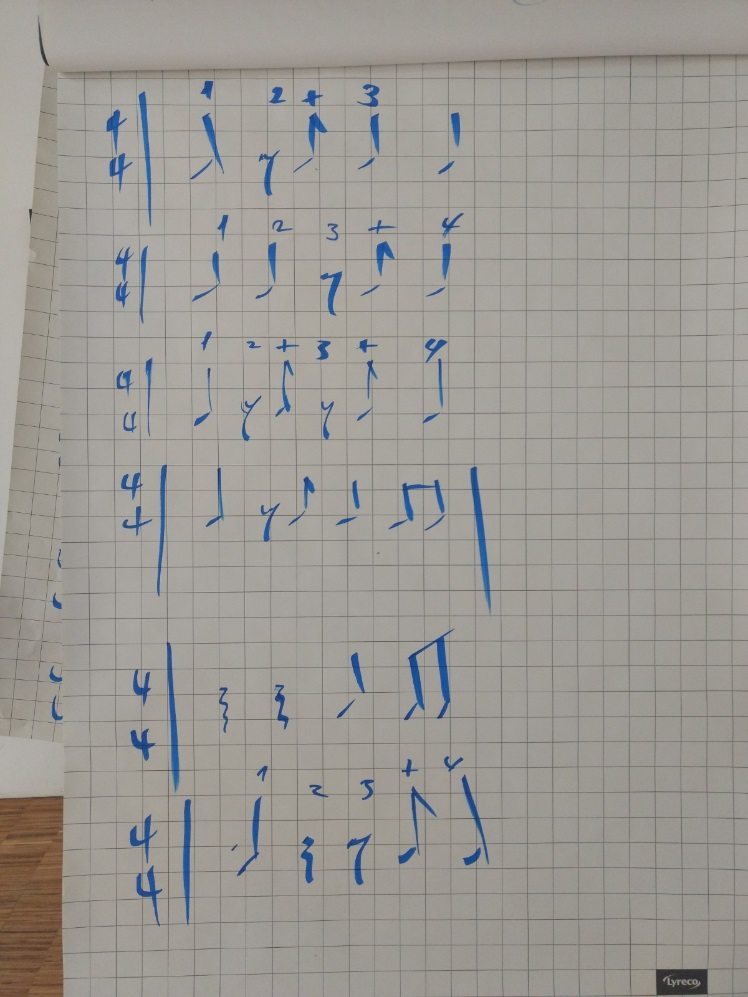 1 2 + 3
4
4
1 2 3 + 4
4
4
1 2 + 3 + 4
4
4
4
4
4
4
1 2 3 + 4
4
4
Lyreco